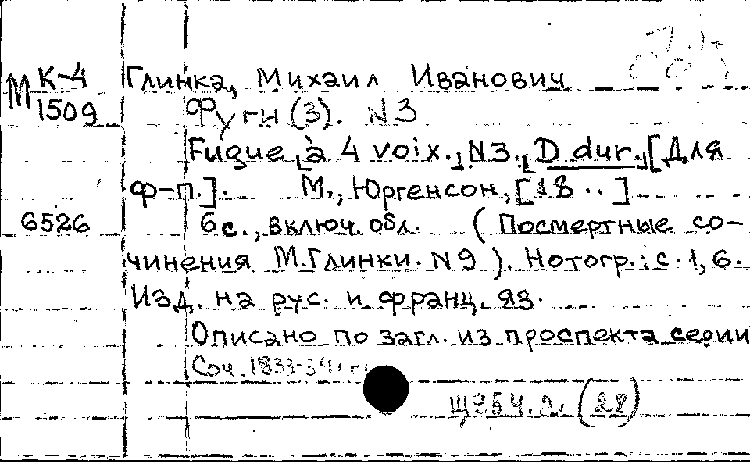 М К-4 Глинка, Михаил Иванович
1509 Фуги (3). N3
Fugue [à 4 voix.] N3. [D dur.] [Для
ф-п.]. М., Юргенсон, [18 . . ]
6526 6 с., включ. обл. (Посмертные со-
чинения М. Глинки. N9). Нотогр.: с. 1, 6.
Изд. на рус. и франц. яз.
Описано по загл. из проспекта серии
Соч. 1833-34
(28)